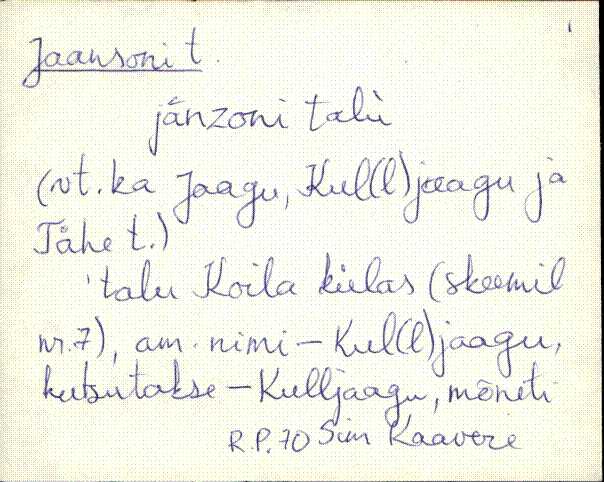 1
Jaansoni t.
jānzoni talù
(vt. ka Jaagu, Kul(l)jaagu ja
Tähe t.)
'talu Koila külas (skeemil
nr. 7), am. nimi – Kul(l)jaagu,
kutsutakse – Kulljaagu, mõneti
R.P. 70 Siim Kaavere